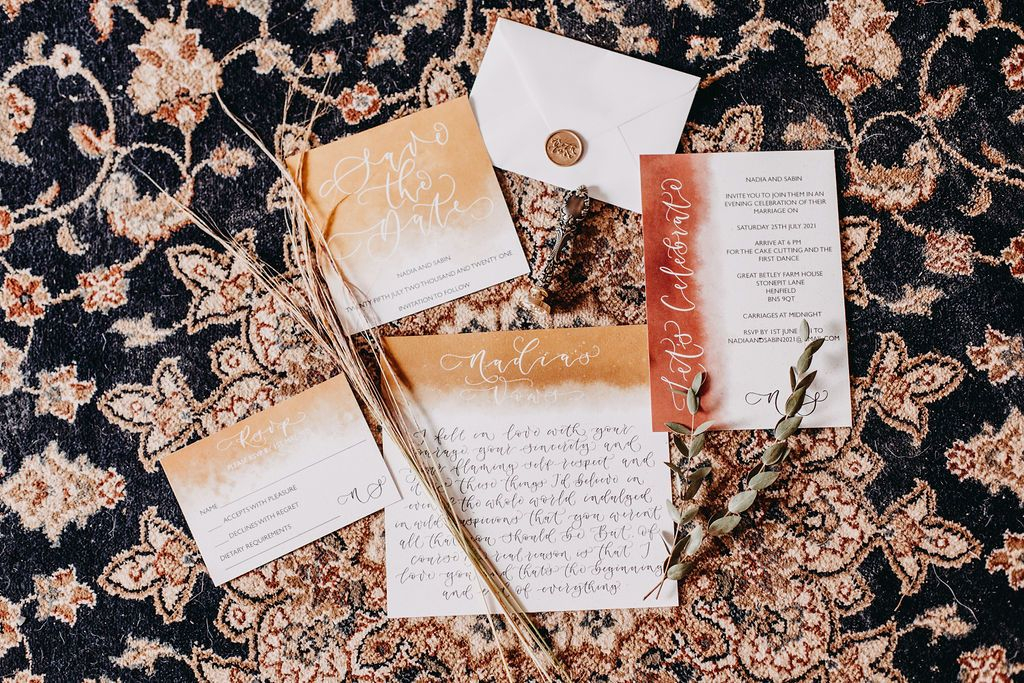 Save
the
Date
NADIA AND SABIN
TWENTY FIFTH JULY TWO THOUSAND AND TWENTY ONE
INVITATION TO FOLLOW
Let's Celebrate
NADIA AND SABIN
INVITE YOU TO JOIN THEM IN AN
EVENING CELEBRATION OF THEIR
MARRIAGE ON
SATURDAY 25TH JULY 2021
ARRIVE AT 6 PM
FOR THE CAKE CUTTING AND THE
FIRST DANCE
GREAT BETLEY FARM HOUSE
STONEPIT LANE
HENFIELD
BN5 9QT
CARRIAGES AT MIDNIGHT
RSVP BY 1ST JUNE TO
NADIAANDSABIN2021@
n S
Nadia's
Vows
I fell in love with your
courage, your sincerity and
your flaming self-respect and
it's these things I'd believe in
even if the whole world indulged
in wild suspicions that you weren't
all that you should be. But of
course the real reason is that I
love you and that's the beginning
and end of everything.
Rsvp
NAME
ACCEPTS WITH PLEASURE
DECLINES WITH REGRET
DIETARY REQUIREMENTS
n S